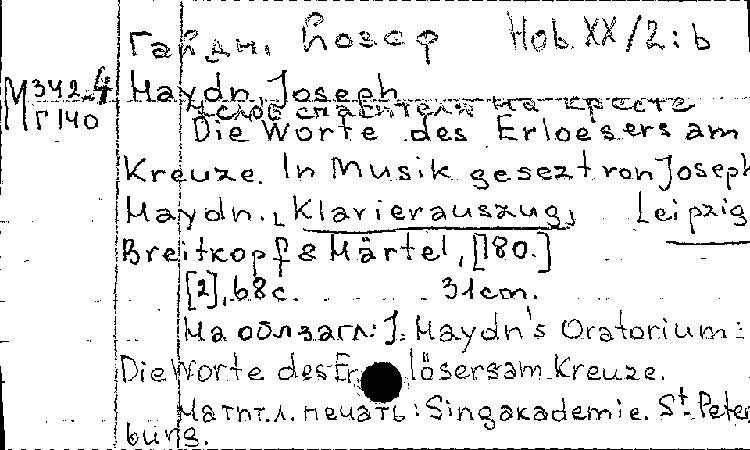 Гайдн, Йозеф Hob. XX/2:b
М 342.4 Haydn, Joseph
Г 140 7 слов спасителя на кресте
Die Worte des Erloesers am
Kreuze. In Musik gesezt von Joseph
Haydn. [Klavierauszug, Leipzig
Breitkopf & Härtel, [180.]
[2], 68 с. 31 cm.
На обл. загл.: J. Haydn's Oratorium:
Die Worte des Erlösers am Kreuze.
На тит. л. печать: Singakademie. St. Peter
burg.